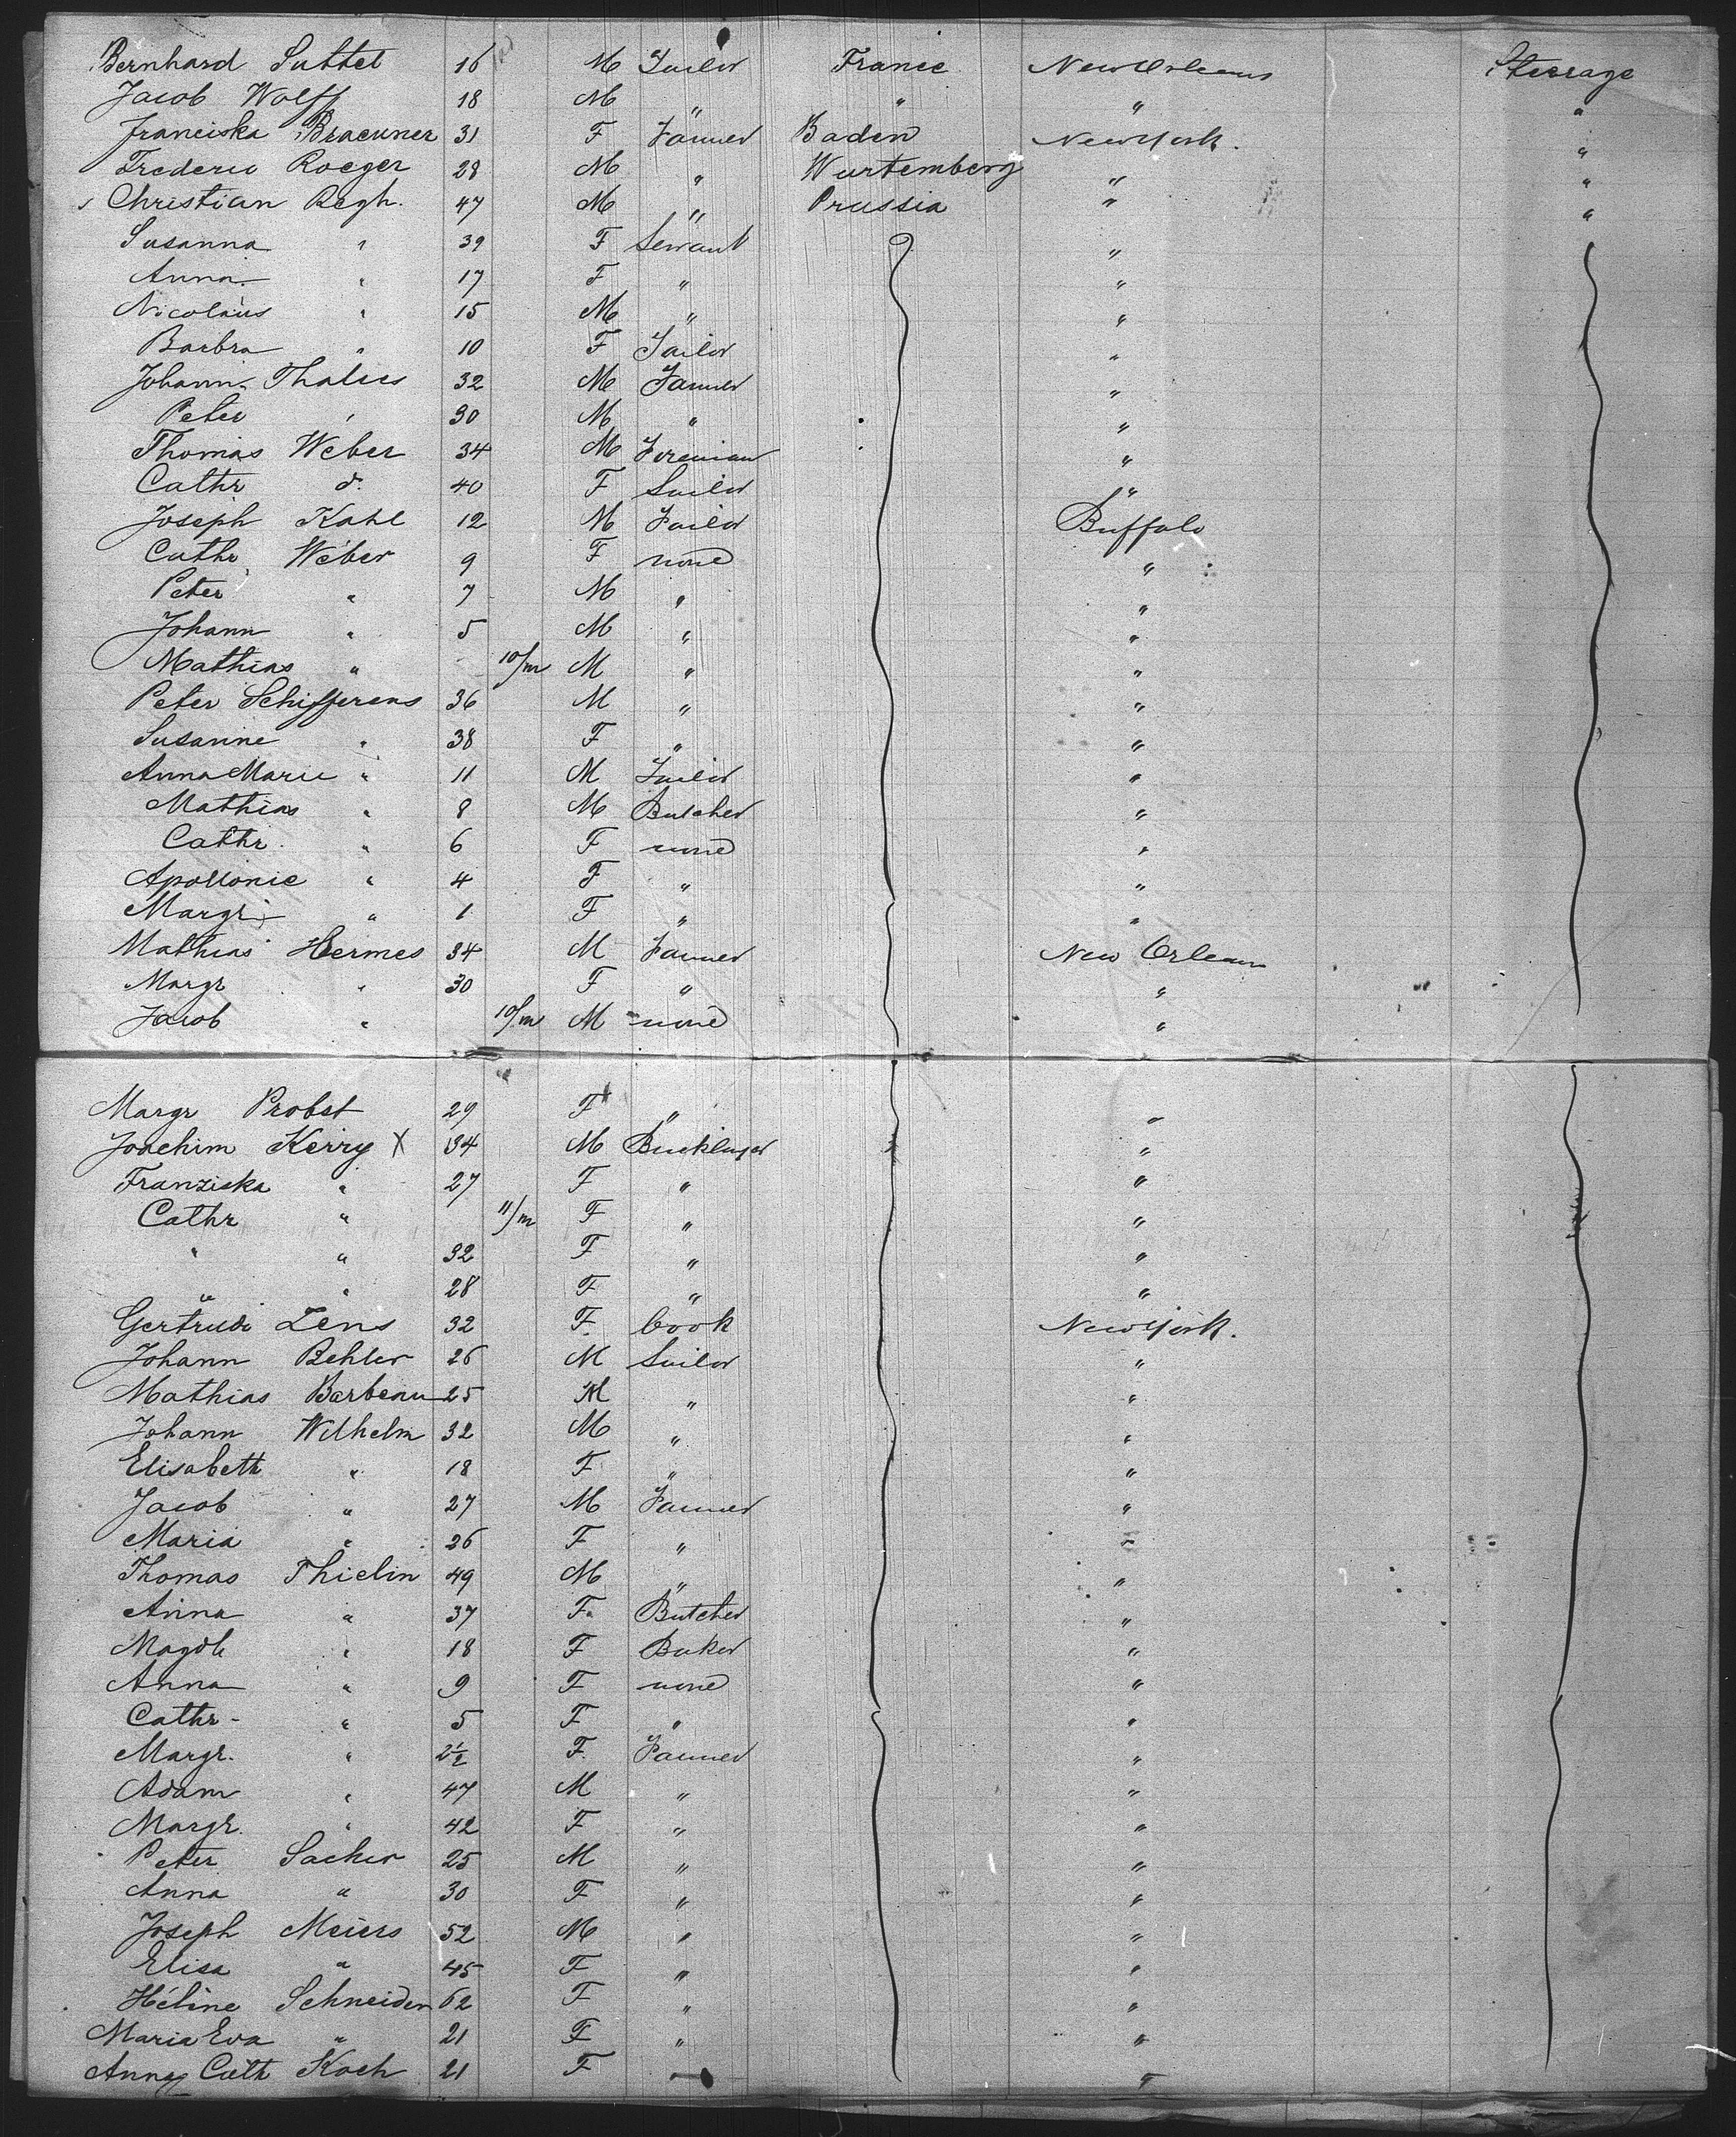 Bernhard Suttel 16 M Tailor France New Orleans Steerage
Jacob Wolff 18 M " " " "
Franciska Brackner 31 F Farmer Baden New York. "
Frederic Roeger 28 M " Wurtemberg " "
Christian Regh. 47 M " Prussia " "
Susanna " 39 F Servant "
Anna " 17 F " "
Nicolaus " 15 M " "
Barbra " 10 F Tailor "
Johann Thalus 32 M Farmer "
Peter " 30 M " "
Thomas Weber 34 M "
Cathr d. 40 F Sailor "
Joseph Kahl 12 M Tailor Buffalo
Cathr. Weber 9 F none "
Peter " 7 M " "
Johann " 5 M " "
Mathias " 10/m M " "
Peter Schifferens 36 M " "
Susanne " 38 F " "
Anna Marie " 11 M Tailor "
Mathias " 8 M Butcher "
Cathr. " 6 F none "
Apollonie " 4 F " "
Margr " 1 F " "
Mathias Hermes 34 M Farmer New Orleans
Margr " 30 F " "
Jacob " 10/m M none "
Margr Probst 29 F " "
Joachim Keiry X 34 M "
Franziska " 27 F " "
Cathr " 11/m F " "
" " 32 F " "
" " 28 F " "
Gertrude Zens 32 F. Cook New York.
Johann Behler 26 M Sailor "
Mathias Barbeau 25 M " "
Johann Wilhelm 32 M " "
Elisabeth " 18 F " "
Jacob " 27 M Farmer "
Maria " 26 F " "
Thomas Thielin 49 M " "
Anna " 37 F. Butcher "
Magdl " 18 F Baker "
Anna " 9 F none "
Cathr- " 5 F " "
Margr. " 2½ F. Farmer "
Adam " 47 M " "
Margr. " 42 F " "
Peter Sacher 25 M " "
Anna " 30 F " "
Joseph Meiers 52 M " "
Elisa " 45 F " "
Héline Schneider 62 F " "
Maria Eva " 21 F " "
Anna Cath Koch 21 F " "